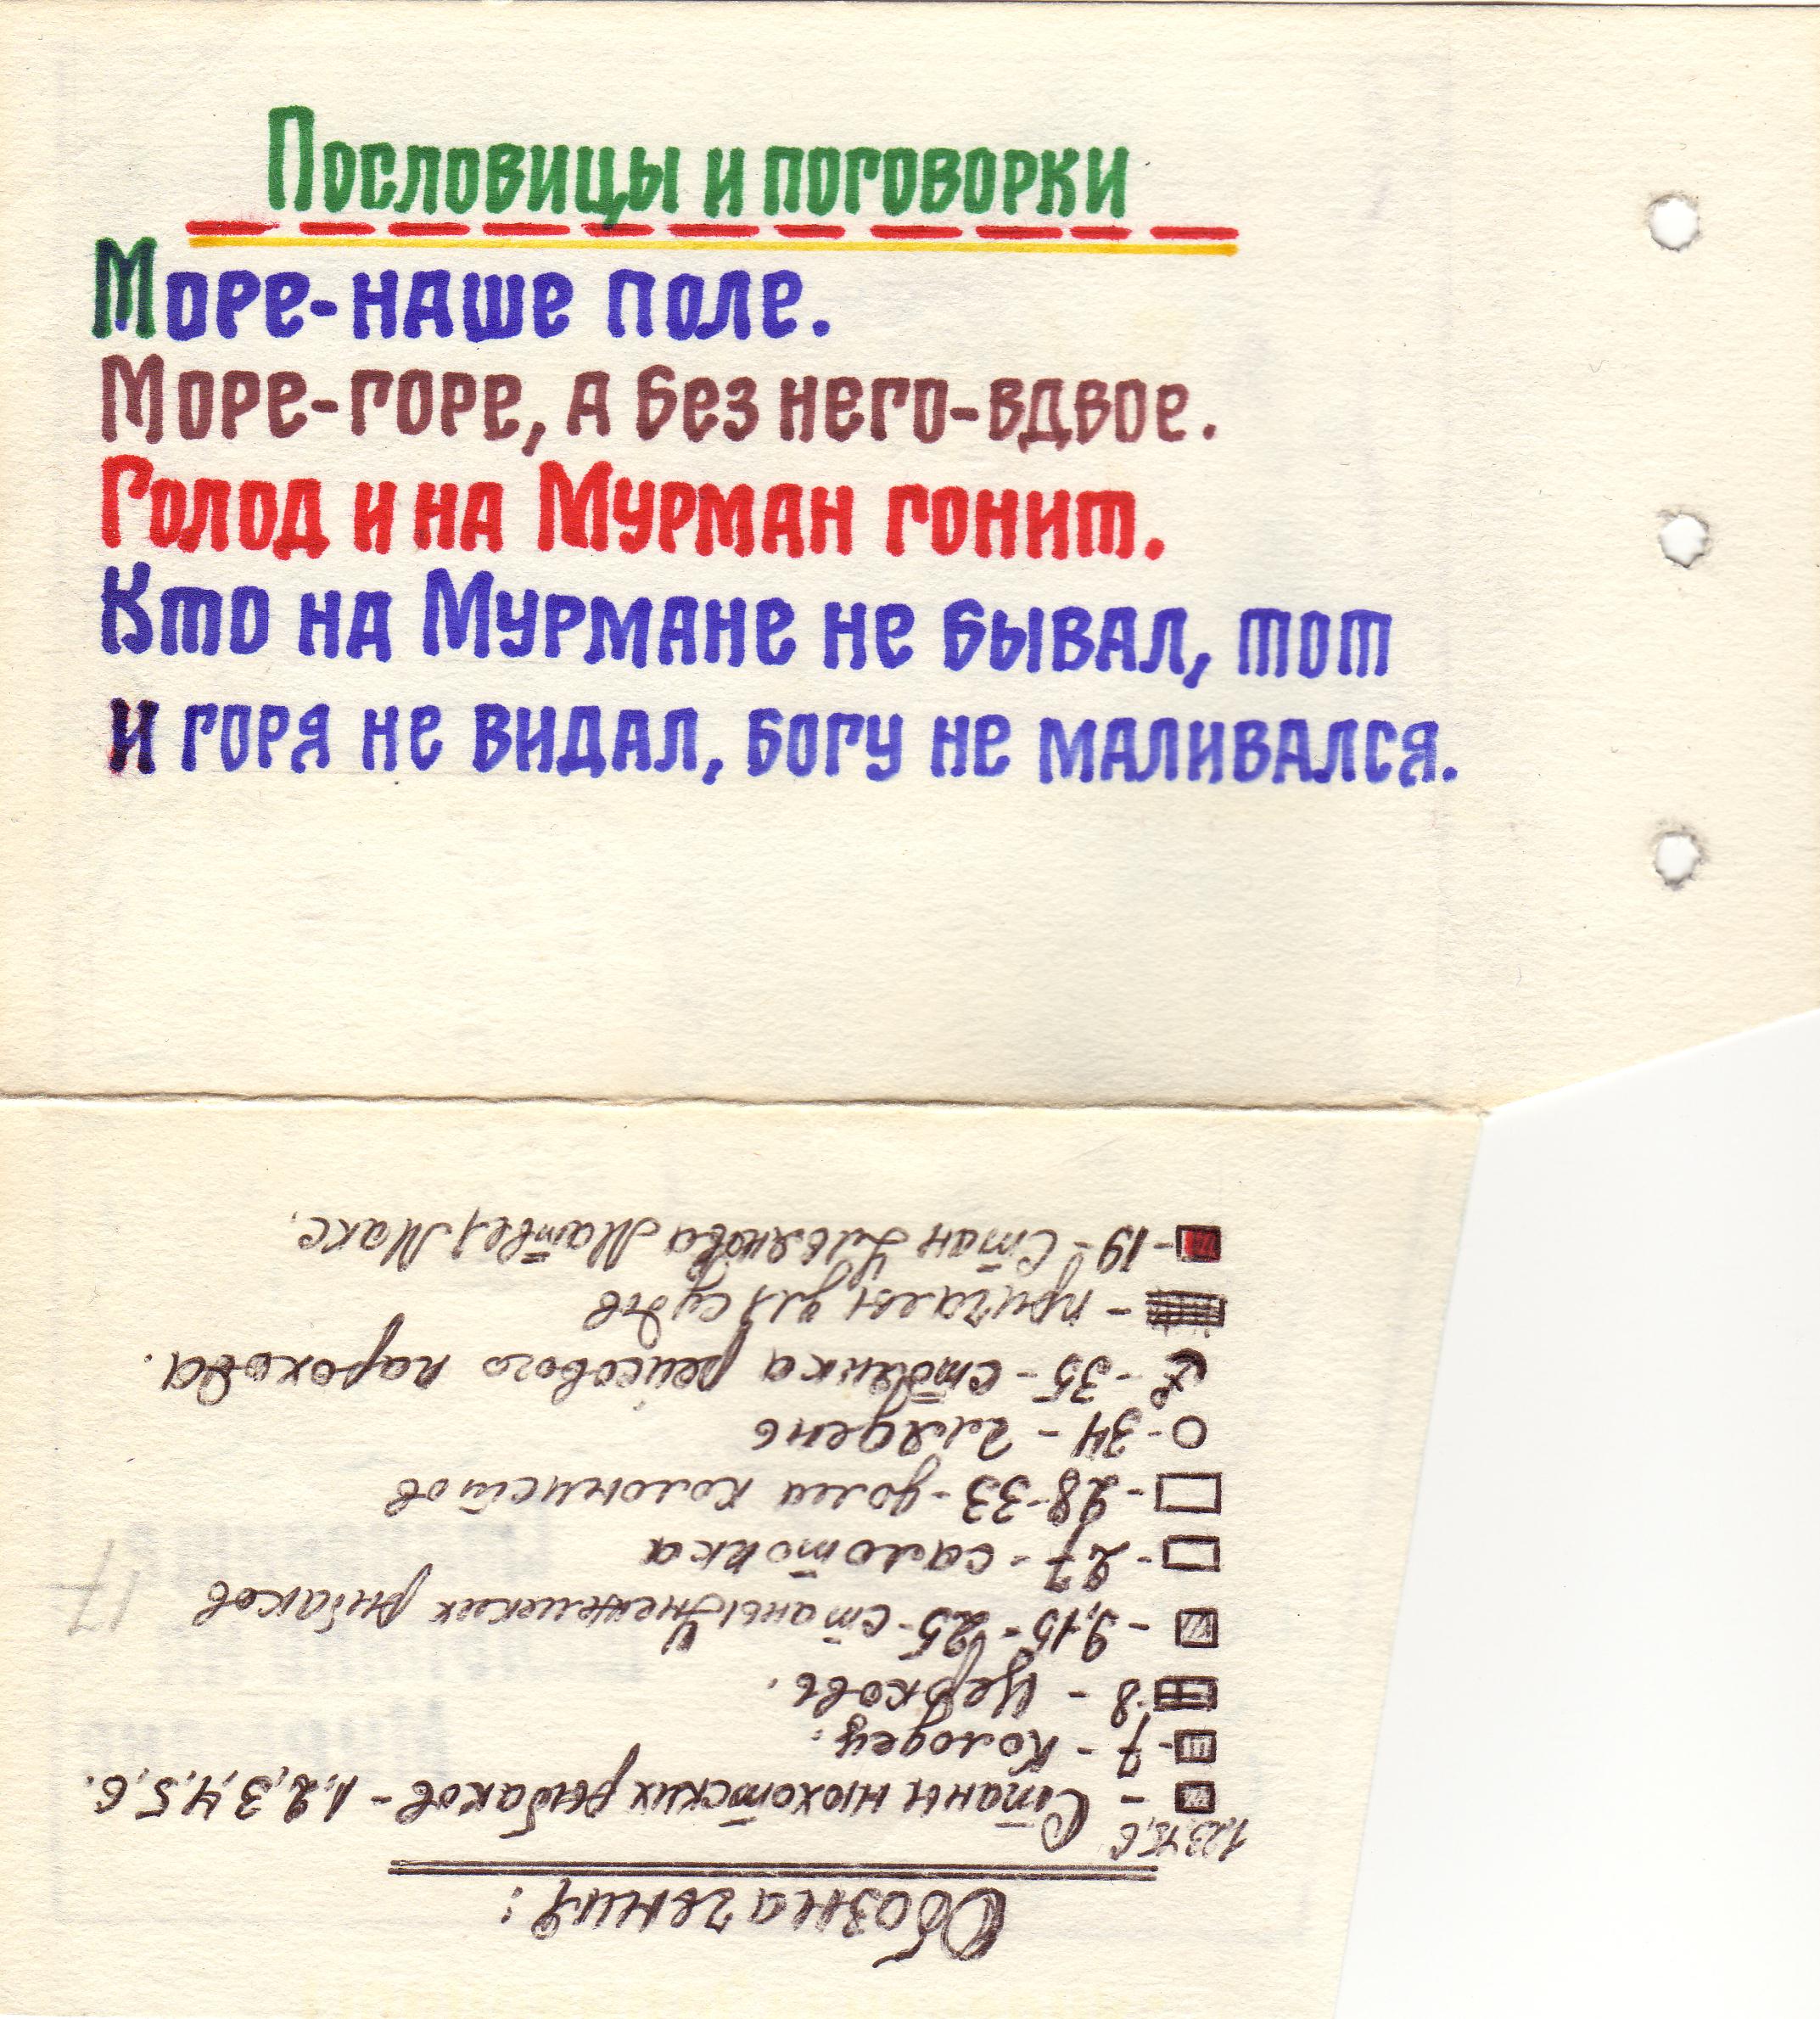 Пословицы и поговорки
Море-наше поле.
Море-горе, а без него-вдвое.
Голод и на Мурман гонит.
Кто на Мурмане не бывал, тот
и горя не видал, богу не маливался.
Обозначения:
1,2,3,4,5,6
- Станы нюхотских рыбаков - 1,2,3,4,5,6.
- 7 - Колодец.
- 8 - Церковь.
- 9,15-25 - станы Унежемских рыбаков
- 27 - салотопка
- 28-33 - дома колонистов
- 34 - глядень
- 35 - стоянка рейсового парохода.
- причалы для судов
- 19 - Стан Ульянова Матвея Макс.
17